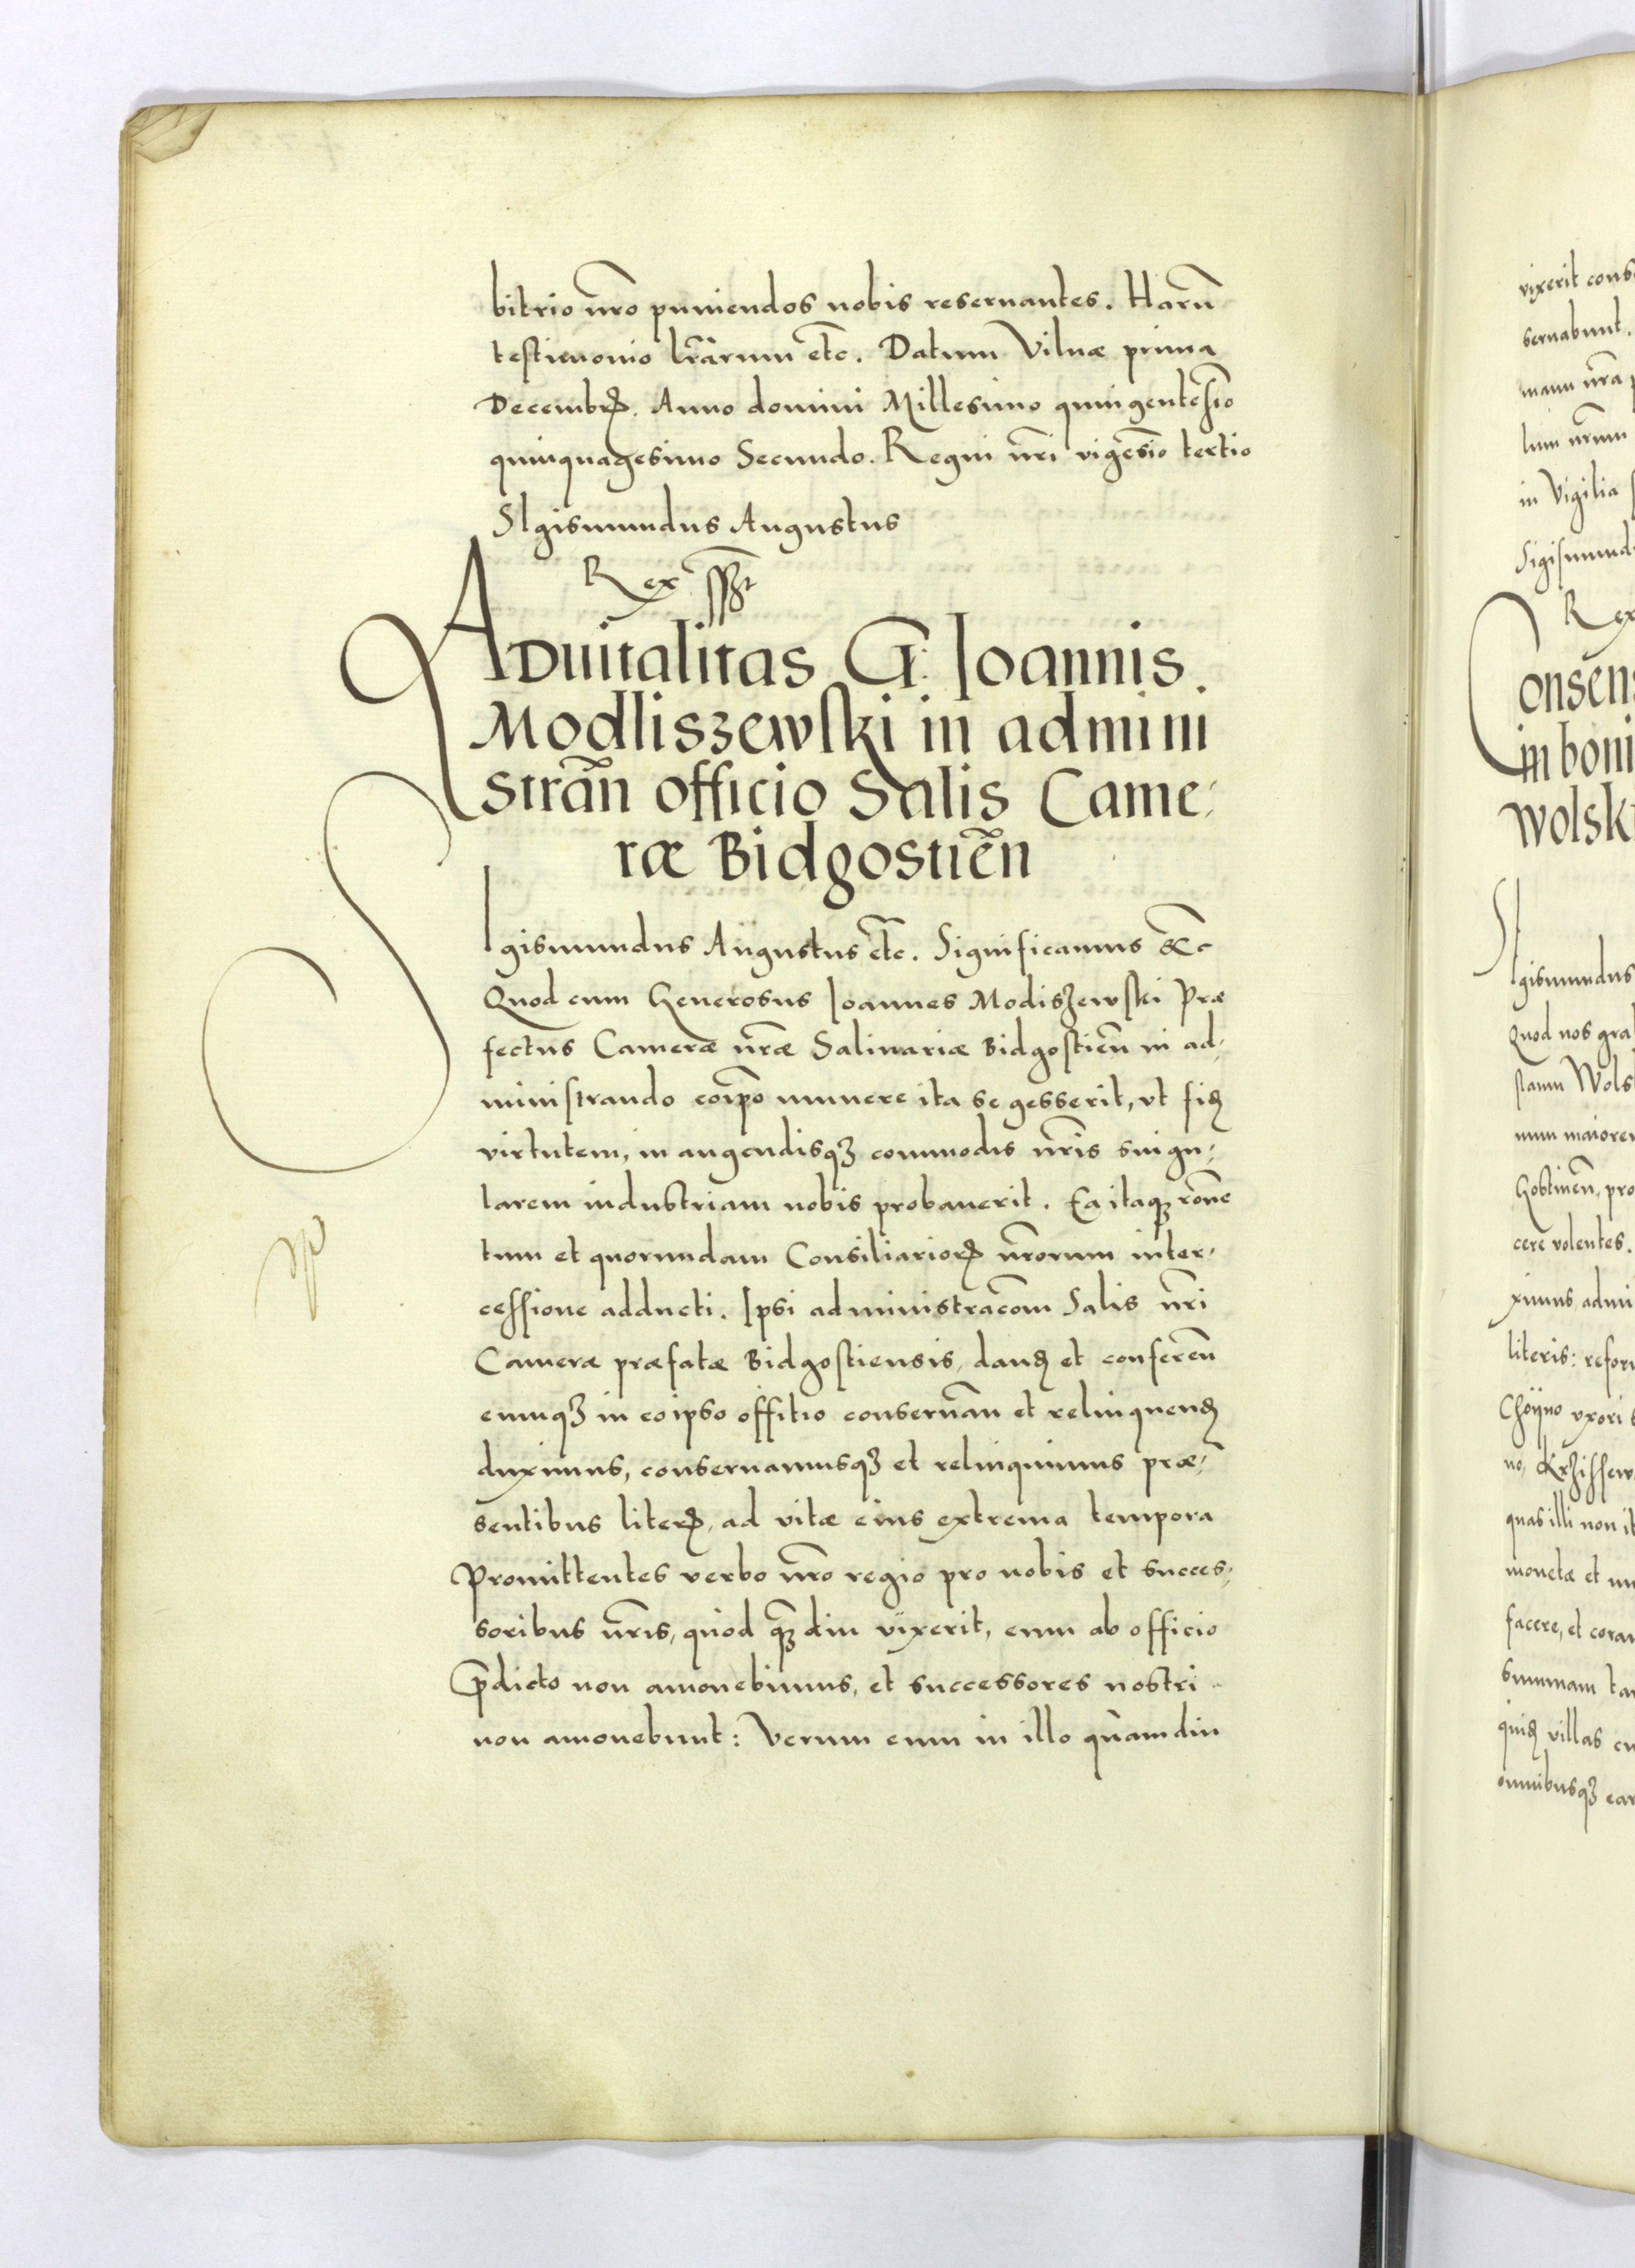 bitrio nr̃o puniendos nobis reseruantes. Harũ
testimonio lr̃arum etc̃. Datum Vilnæ prima
Decembrꝭ. Anno domini Millesimo quingentesĩo
quinquagesimo Secundo. Regni nr̃i vigesĩo tertio
SIgismundus Augustus
Rex
ADuitalitas G. Ioannis
Modliszewski in admini
strañ officio Salis Came⸗
ræ Bidgostieñ
SIgismundus Augustus etc̃. Significamus &c
Quod cum Generosus Ioannes Modiszewski Præ
fectus Cameræ nr̃æ Salinariæ Bidgostieñ in ad⸗
ministrando eoip̃o munere ita se gesserit, vt fiꝺ
virtutem, in augendisqꝫ commodis nr̃is singu⸗
larem industriam nobis probauerit. Ea itaqꝫ rõne
tum et quorundam Consiliarioꝝ nr̃orum inter⸗
cessione adducti. Ipsi administracõm Salis nr̃i
Cameræ præfatæ Bidgostiensis, danꝺ et confereñ
eumqꝫ in eoipso offitio conseruañ et relinquenꝺ
duximus, conseruamusqꝫ et relinquimus præ⸗
sentibus literꝭ, ad vitæ eius extrema tempora
Promittentes verbo nr̃o regio pro nobis et succes⸗
soribus nr̃is, quod qꝫ diu vixerit, eum ab officio
p̃dicto non amouebimus, et successores nostri
non amouebunt: Verum eum in illo quamdiu
vixerit cons
seruabunt.
manu nr̃a
lum nr̃um
in Vigilia
Sigismund
Rex
Consens
in boni
Wolsk
SIgismundus
Quod nos gra
slaum Wols
num maiorem
Gostineñ, pro
cere volentes.
ximus, admi
literis: refor
Choijno vxori
no, Krzissew
quas illi non it
monetæ et nu
facere, et coram
summam tan
quiꝺ villas cu
omnibusqꝫ ear